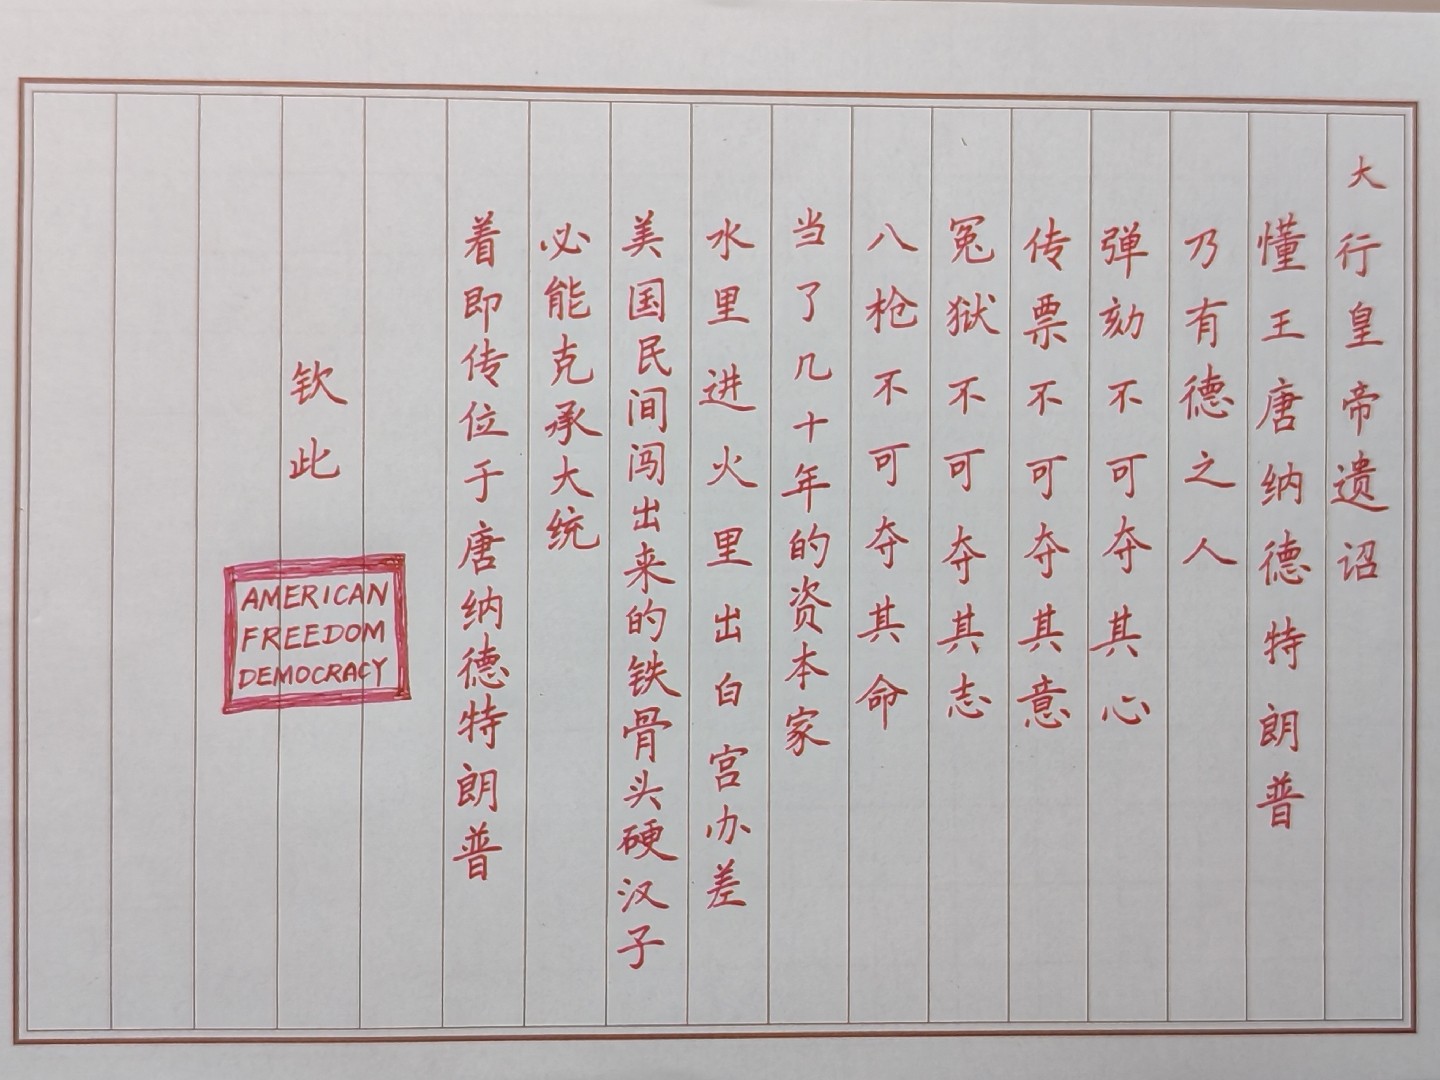 大行皇帝遗诏
懂王唐纳德特朗普
乃有德之人
弹劾不可夺其心
传票不可夺其意
冤狱不可夺其志
八枪不可夺其命
当了几十年的资本家
水里进火里出白宫办差
美国民间闯出来的铁骨头硬汉子
必能克承大统
着即传位于唐纳德特朗普
钦此
AMERICAN
FREEDOM
DEMOCRACY